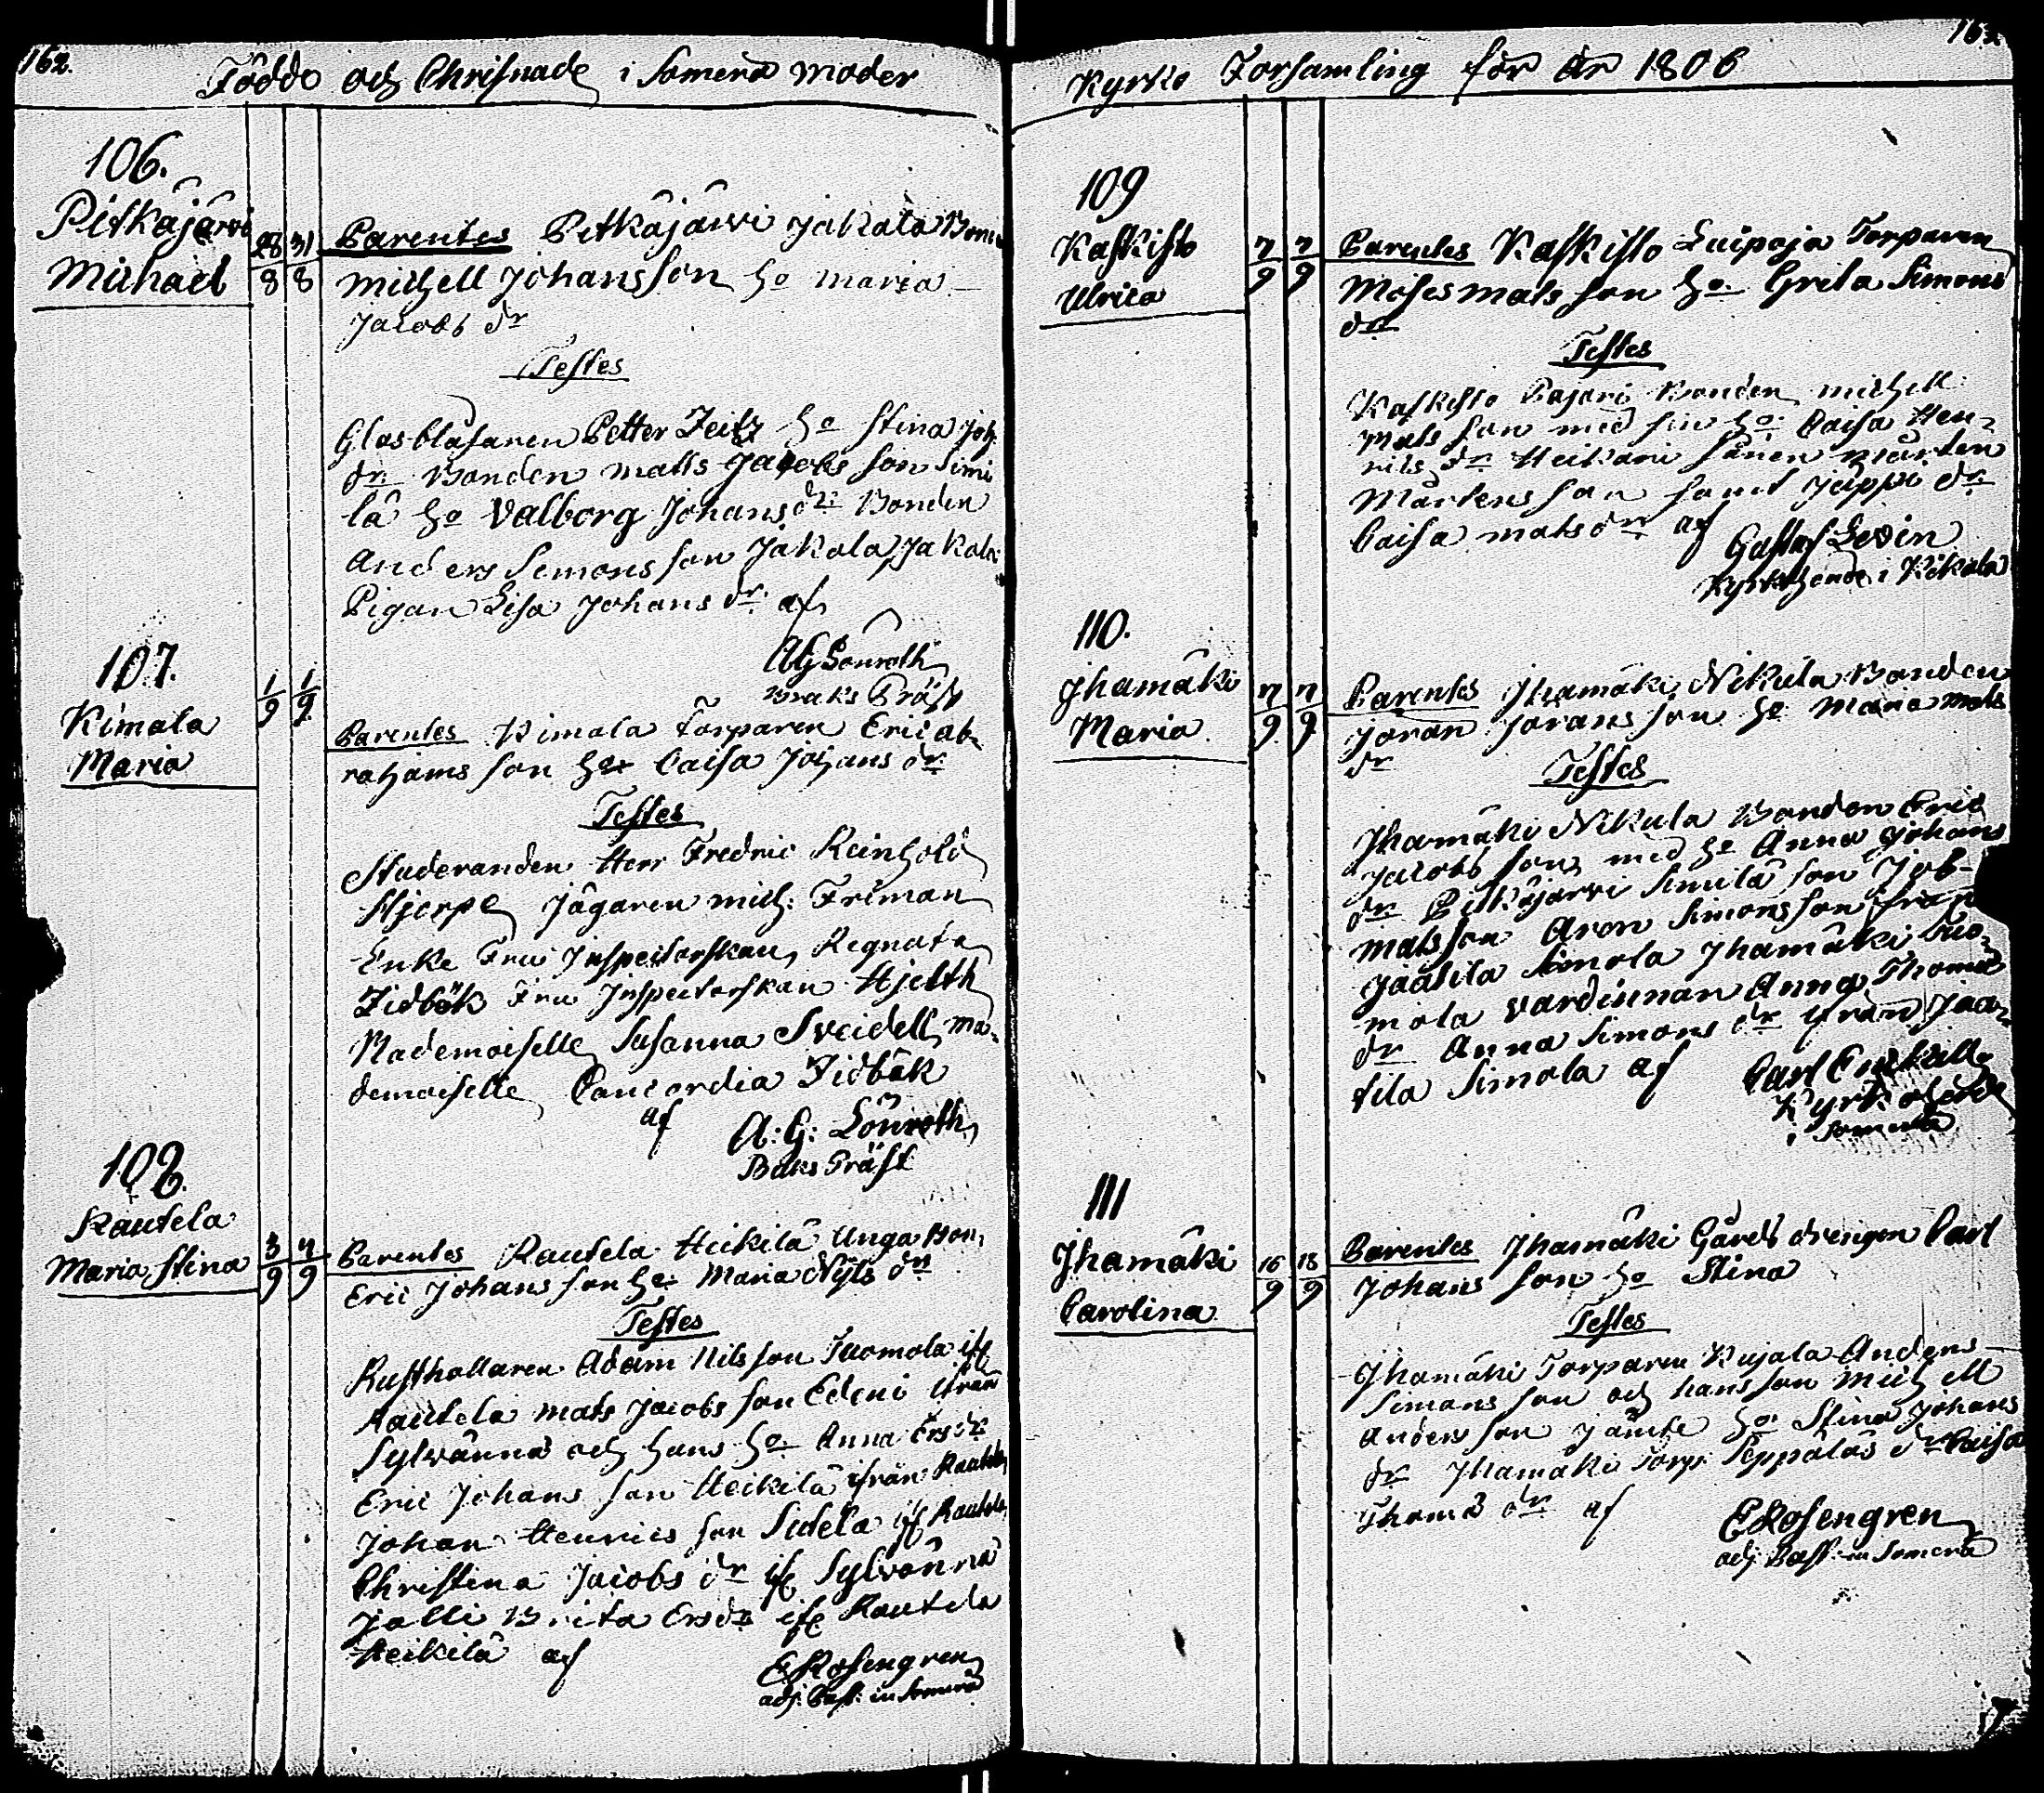 162.
Födde och Christnade i Somero moder
106.
Pitkäjärvi
Michael
28 31
8 8
Parentes Pitkäjärvi Jakala Bonden
Michell Johansson ho Maria
Jacobs dr
Testes
Glasblåsaren Petter Zeitz ho Stina Joh.
dr Bonden Matts Jacobs son Simi
lä ho Valborg Johans dr Bonden
Anders Simons son Jakala Jakala
Pigan Lisa Johans dr af
AG Lönroth
Bruks Präst
107.
Kimala
Maria
1 1
9 9
Parentes Kimala Torparen Eric Ab-
rahams son ho Caisa Johans dr
Testes
Studeranden Herr Fredric Reinhold
Stjerpe Jägaren Mich: Friman
Enke Fru Inspectorskan Regnata
Zidbäk Fru Inspectorskan Hjelth
Mademoiselle Susanna Sveidell Ma-
demoiselle Concordia Zidbäk
af A: G: Lönroth
Bruks Präst
108.
Rautela
Maria Stina
3 4
9 9
Parentes Rautela Heikilä Unga Bon.
Eric Johans son ho Maria Nils dr
Testes
Rusthollaren Adam Nils son Tuomola if
Rautela Mats Jacobs son Edeni ifrån
Sylvännä och hans ho Anna Ersdr
Eric Johans son Heikilä ifrån Rautela
Johan Henrics son Sidela if Rautela
Christina Jacobs dr if Sylvännä
Jalli Brita Ersdr if Rautela
Heikilä af
E Rosengren
adj. Past: in Somero
163.
Kyrko Församling för år 1806
109
Kaskisto
Ulrica
7 7
9 9
Parentes Kaskisto Luipoja Torparen
Moses Mats son ho Greta Simons
dr
Testes
Kaskisto Pajari Bonden Michell
Mats son med sin ho Caisa Hen-
rics dr Heikari sonen Mårten
Mårtens son samt Jäppi dr
Caisa Mats dr af Gustaf Levin
Kyrkoherde i Kikala
110.
Jhamäki
Maria
7 7
9 9
Parentes Jhamäki Nikula Bonden
Joran Jörans son ho Maria Mats
dr
Testes
Jhamäki Nikula Bonden Eric
Jacobs son med ho Anna Johans
dr Pitkäjärvi Similä son Job-
Matsson Aron Simons son från
Jaatila Simola Jhamäki Tuo-
mola värdinnan Anna Thomas
dr Anna Simons dr ifrån Jaa-
tila Simola af Carl Enckell
Kyrkoherde
i Somero
111
Jhamäki
Carolina
16 18
9 9
Parentes Jhamäki Gårds drengen Carl
Johans son ho Stina
Testes
Jhamäki Torparen Kujala Anders
Simons son och hans son Michell
Anders son jämte ho Stina Johans
dr Jhamäki Torp: Seppäläs dr Caisa
Thomas dr af
E Rosengren
adj. Past: in Somero